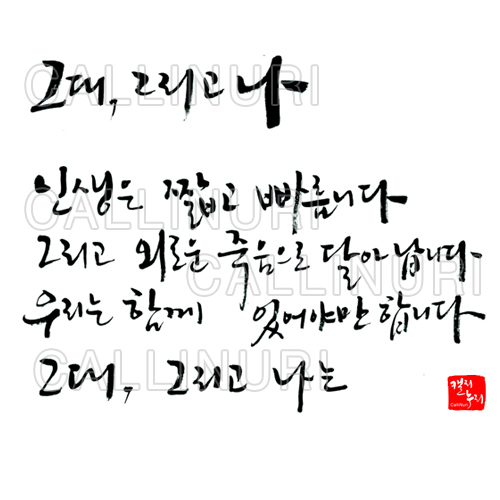 그대, 그리고 나
인생은 짧고 빠릅니다
그리고 외로운 죽음으로 달아납니다
우리는 함께 있어야만 합니다
그대, 그리고 나는
CALLINURI
CALLINURI
CALLINURI
CALLINURI
캘리누리
CalliNuri